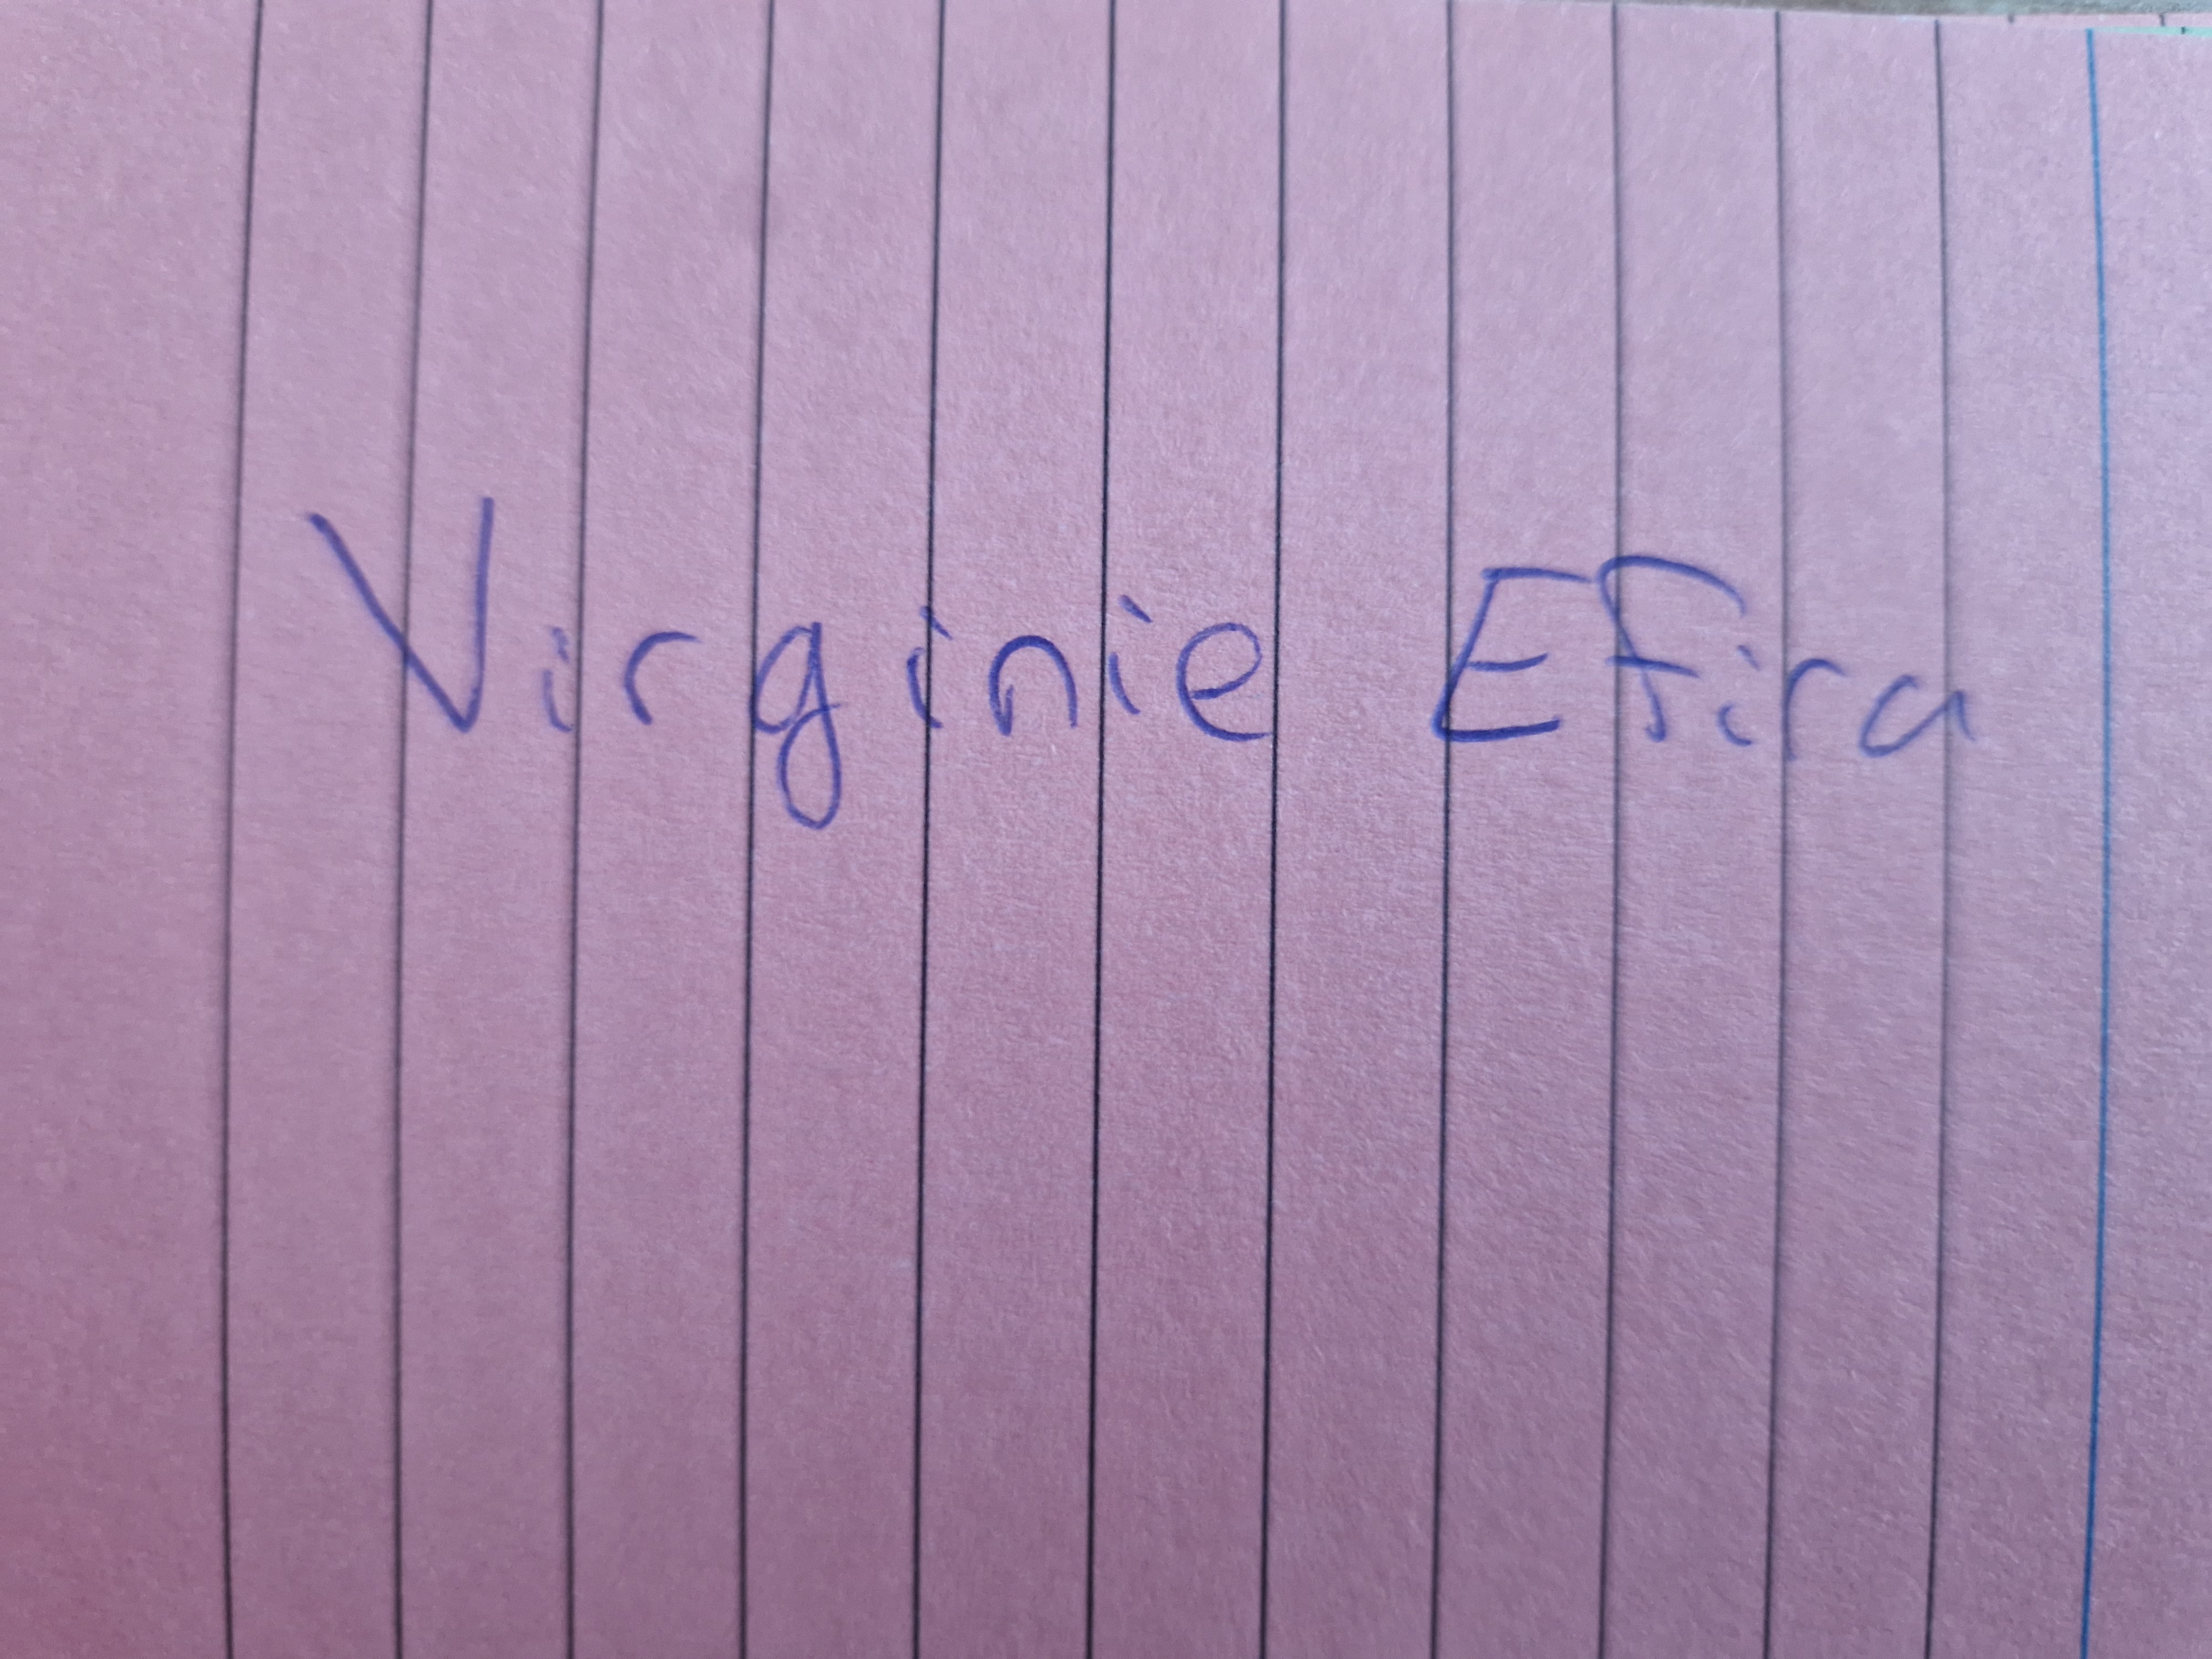 Virginie Efira